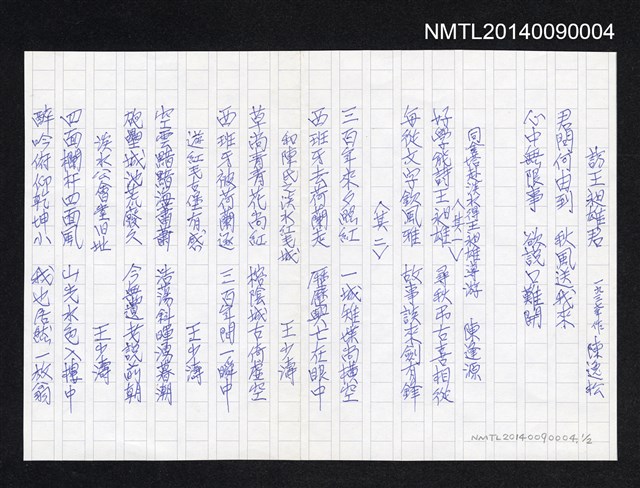 NMTL20140090004
訪王昶雄君 一九三三年作 陳逸松
君問何由到 秋風送我來
心中無限事 欲說口難開
同喜淡水得王昶雄導游 陳逢源
〈其一〉
好學能詩王昶雄 尋秋弔古喜相從
每從文字欽風雅 故事談來劍有鋒
〈其二〉
三百年來夕照紅 一城雉堞尚橫空
西班牙去荷蘭走 歷歷興亡在眼中
和陳氏之淡水紅毛城 王少濤
草尚青青花尚紅 格陰城古倚層空
西班牙被荷蘭逐 三百年間一瞬中
遊紅毛古堡有感 王少濤
空雲黯黯海蕭蕭 浩蕩斜暉滿暮潮
砲壘城池荒廢久 今無遺老說前朝
淡水公會堂旧址 王少濤
四面欄杆四面風 山光水色入樓中
醉吟俯仰乾坤小 我也居然一放翁
NMTL20140090004, 1/2